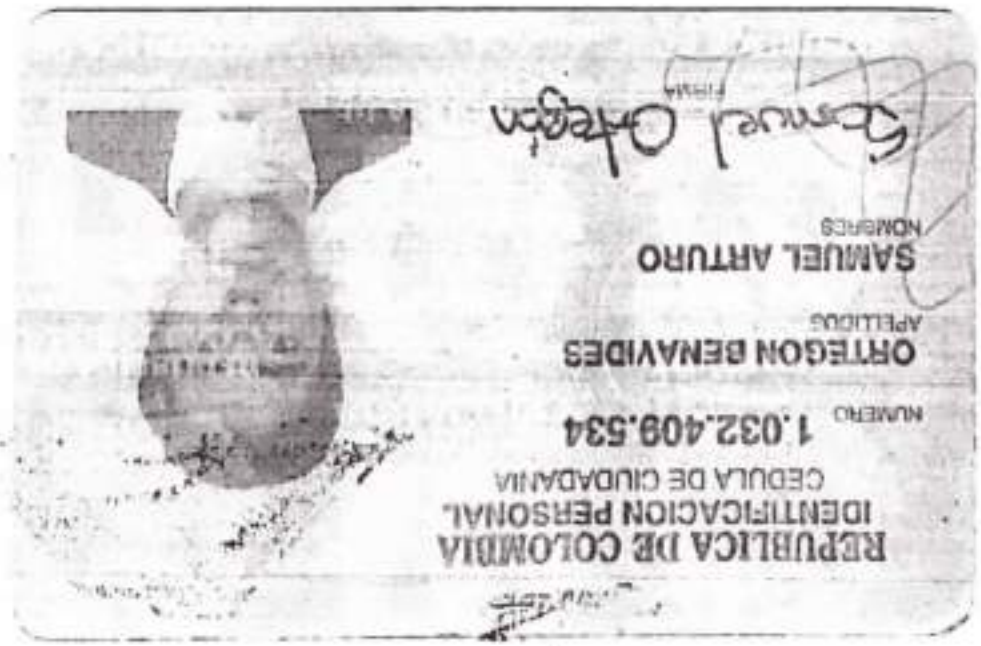 REPUBLICA DE COLOMBIA
IDENTIFICACION PERSONAL
CEDULA DE CIUDADANIA
NUMERO 1.032.409.534
ORTEGON BENAVIDES
APELLIDOS
SAMUEL ARTURO
NOMBRES
Samuel Ortegón
FIRMA